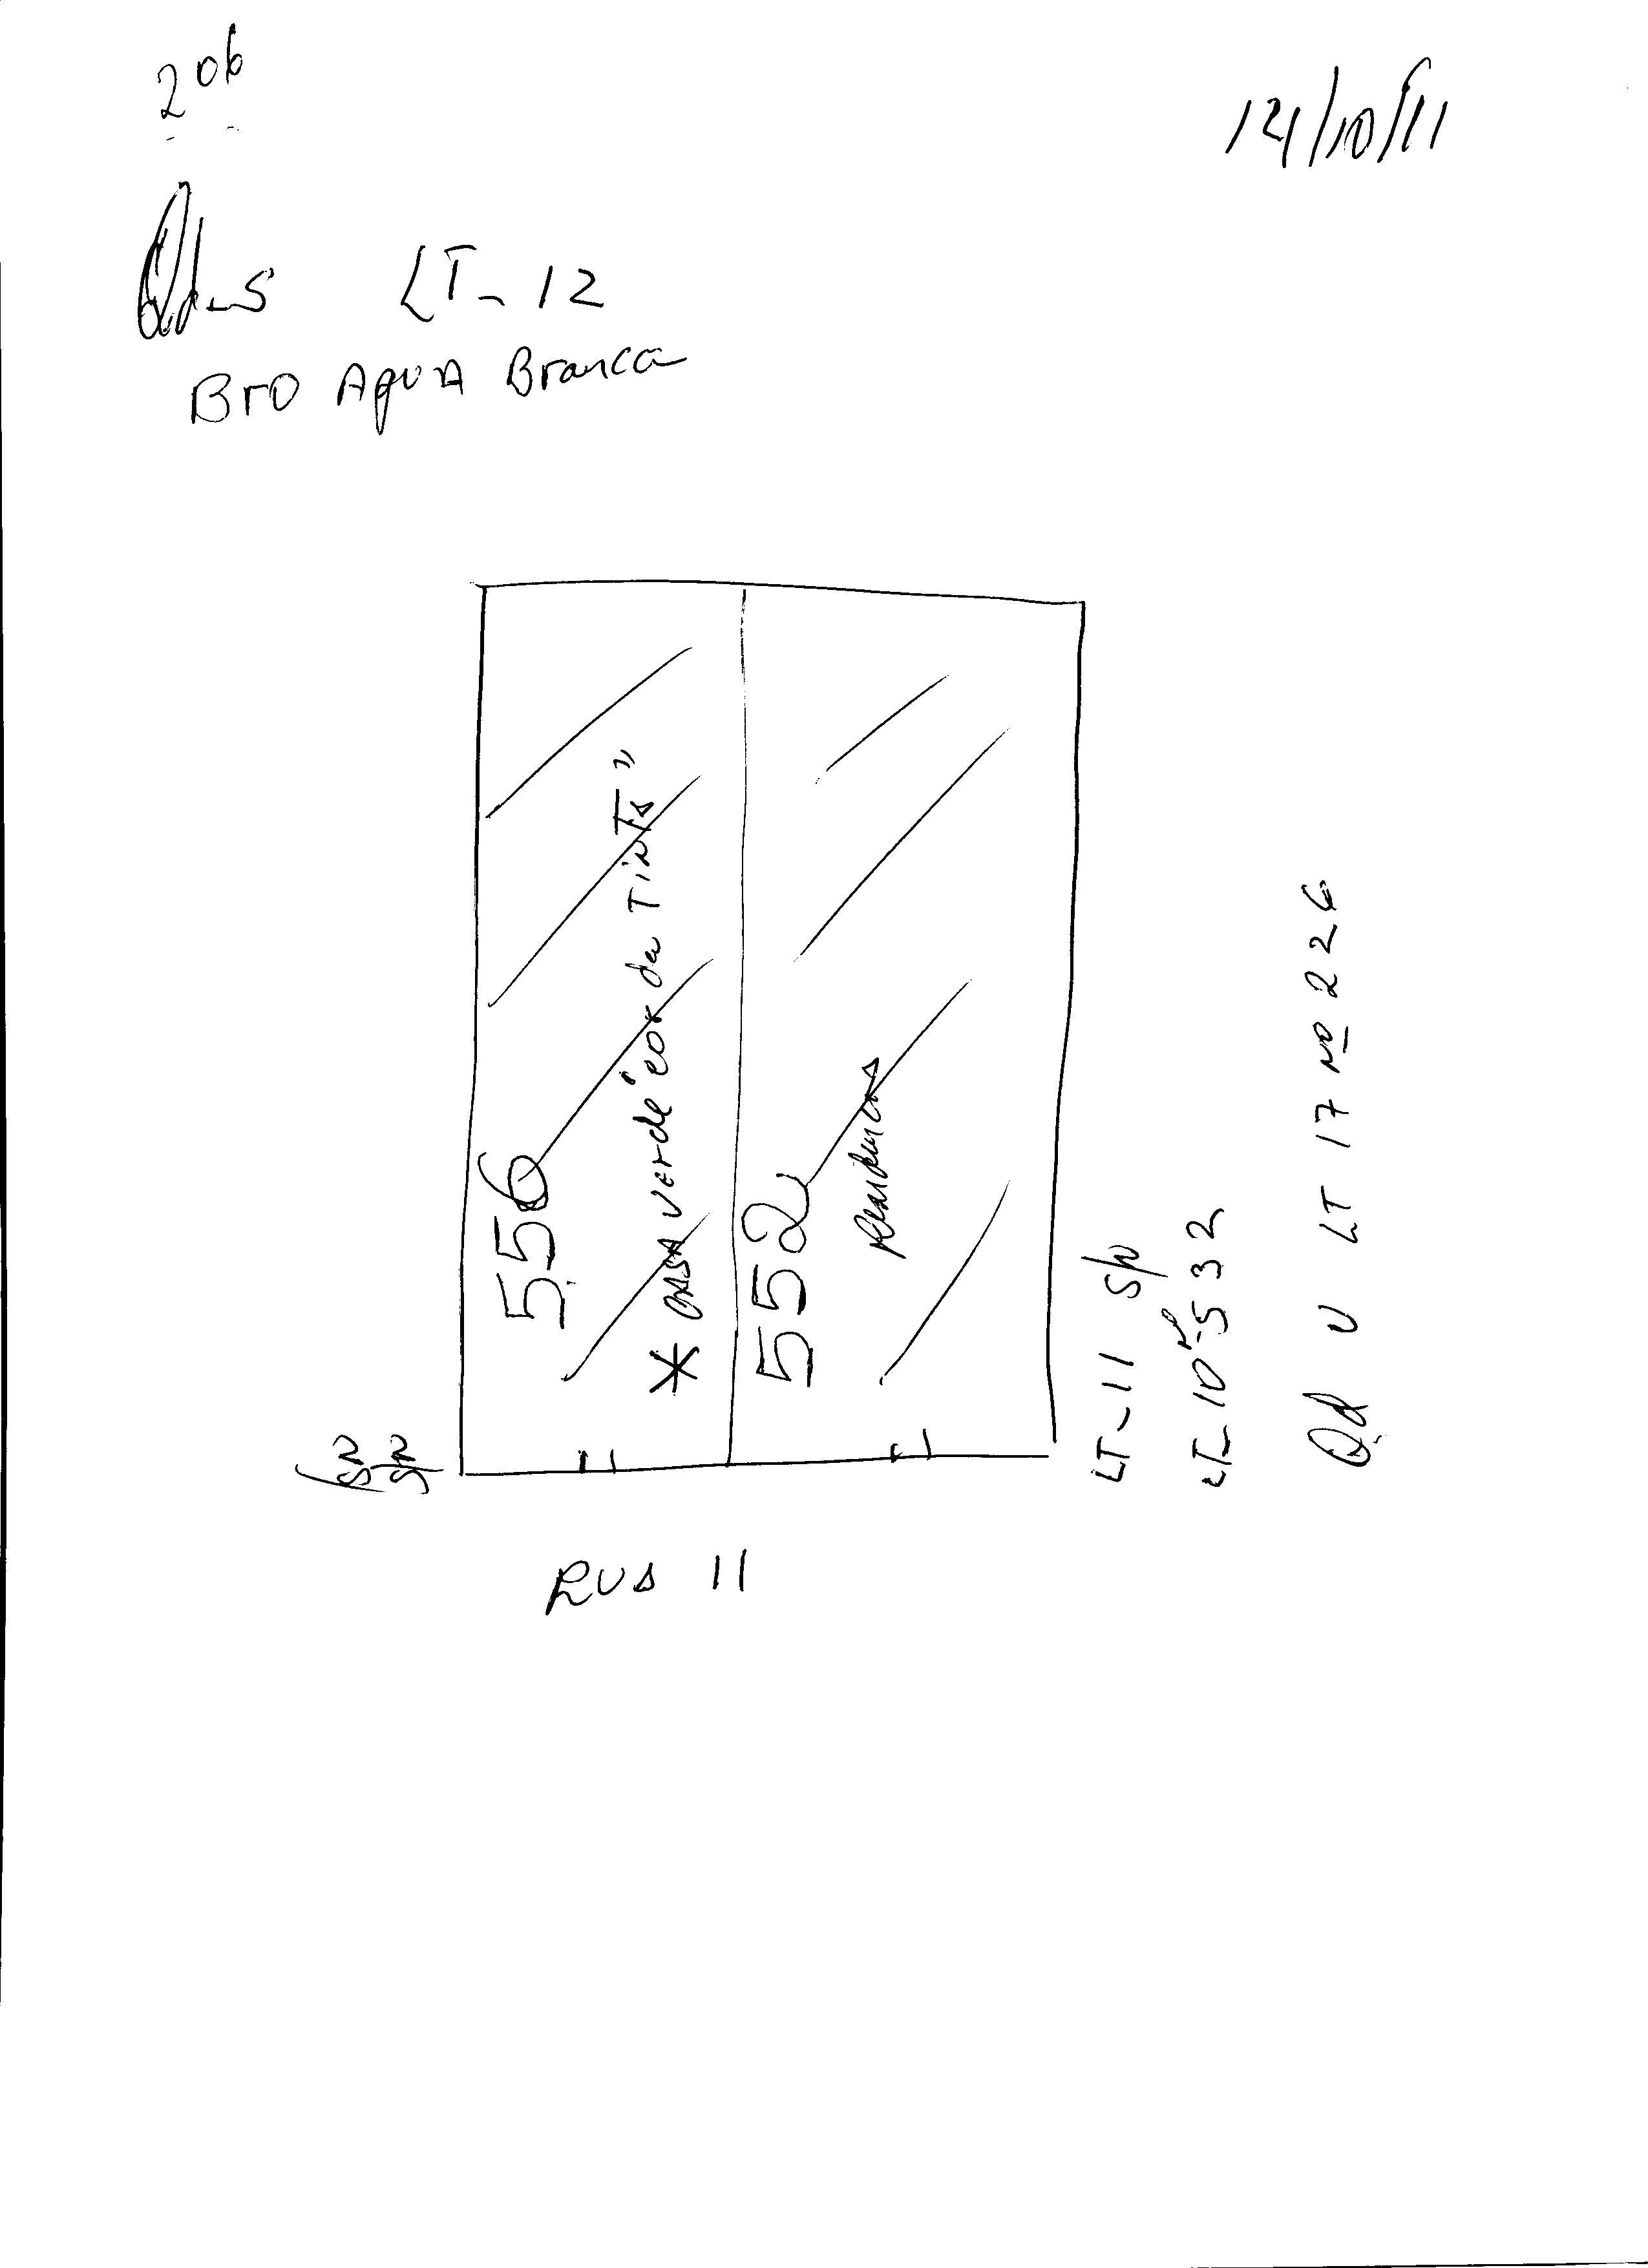 206
14/10/11
Qd-S LT-12
BrO AguA Branca
556
* CASA verde "cor da TinTA"
552
Residencia
LT-11 S/N
LT-10 nº 532
Qd U LT 17 Nº 226
RUA 11